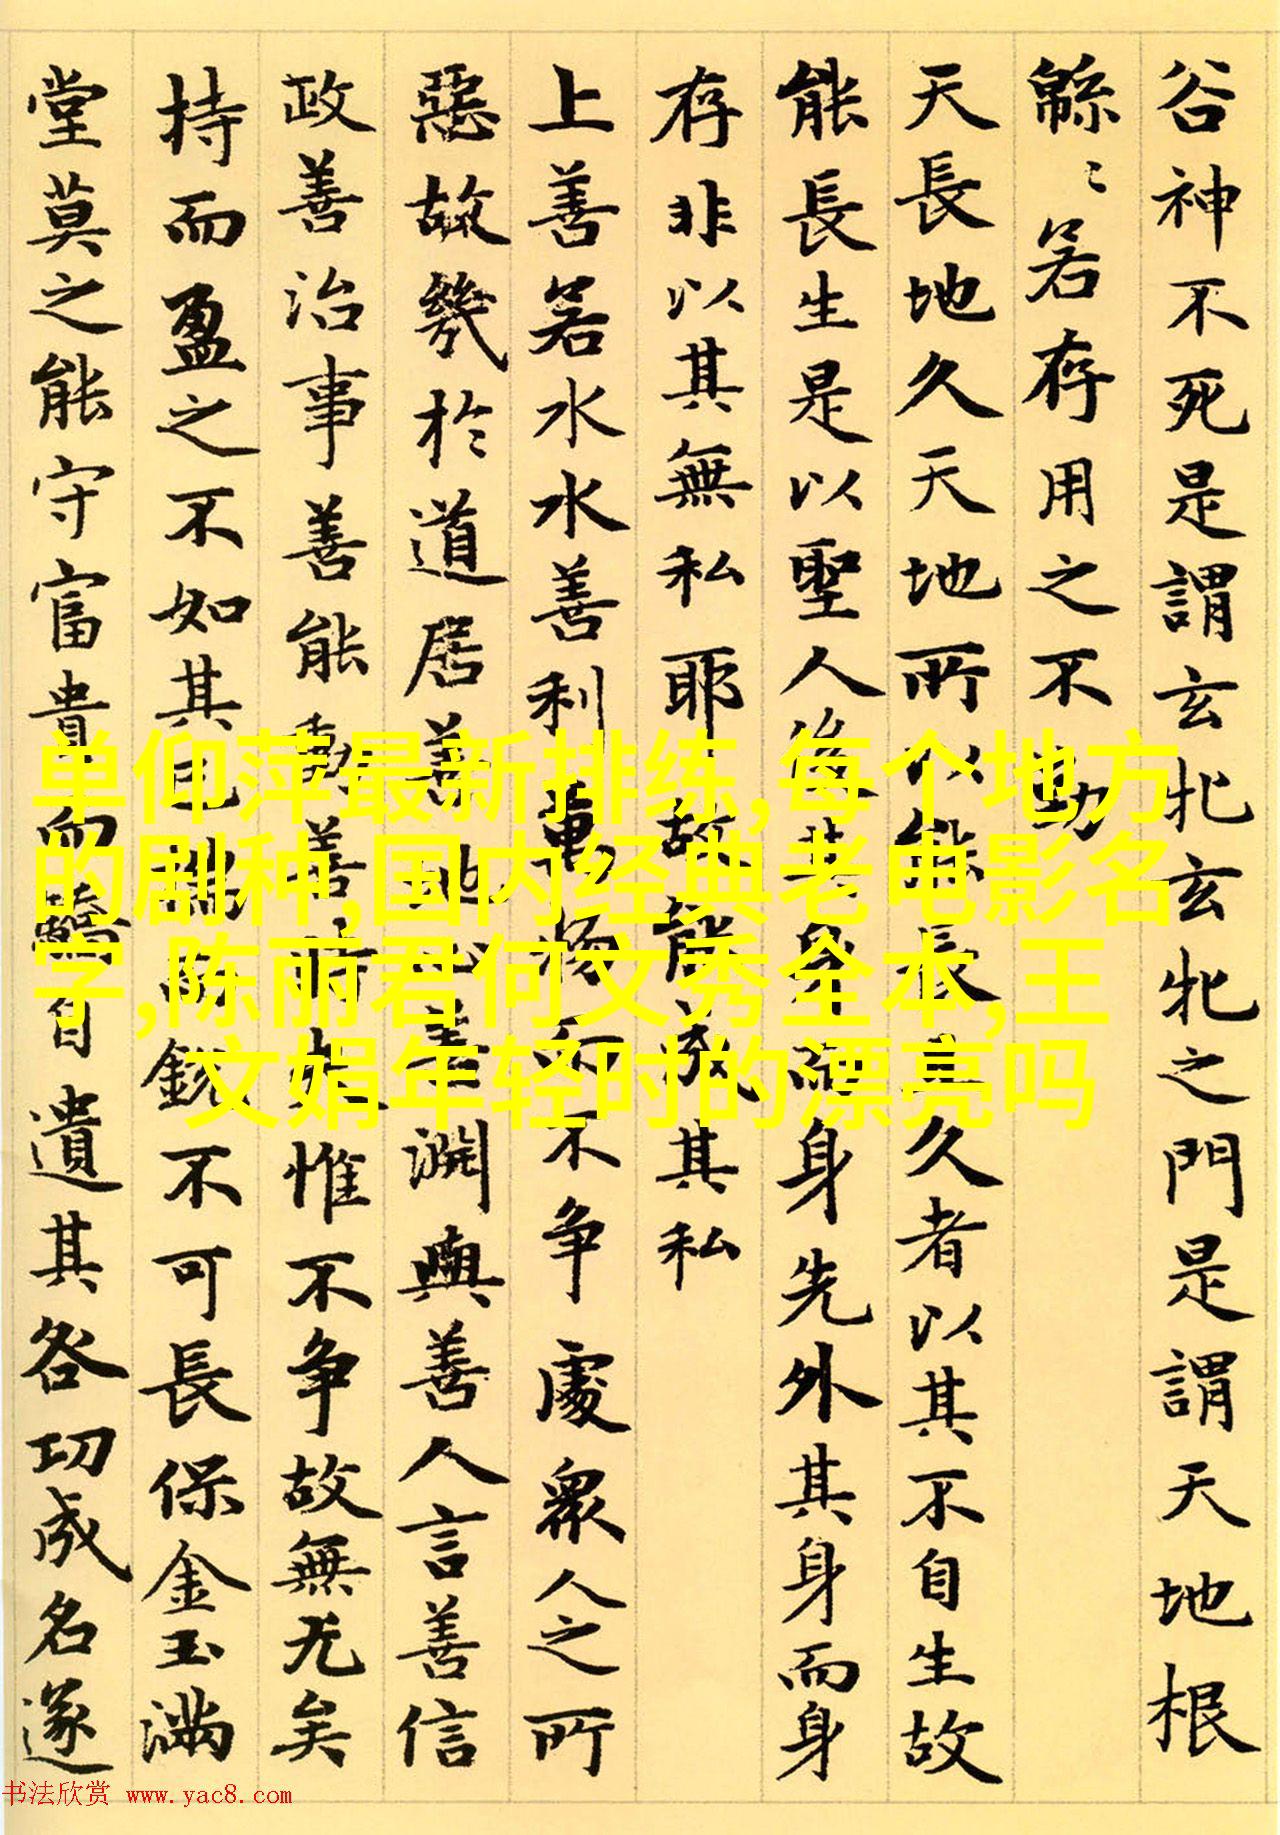 谷神不死是謂玄牝玄牝之門是謂天地根
緜〻若存用之不勤
天長地久天地所以能長且久者以其不自生故
能長生是以聖人後其身而身先外其身而身
存非以其無私耶故能成其私
上善若水水善利萬物而不争處衆人之所
惡故幾於道居善地心善淵與善人言善信
政善治事善能動善時夫惟不争故無尤矣
持而盈之不如其已揣銳不可長保金玉滿
堂莫之能守富貴而驕自遺其咎功成名遂
单仰萍最新排练,每个地方
的剧种,国内经典老电影名
字,陈丽君何文秀全本,王
文娟年轻时的漂亮吗
书法欣赏 www.yac8.com